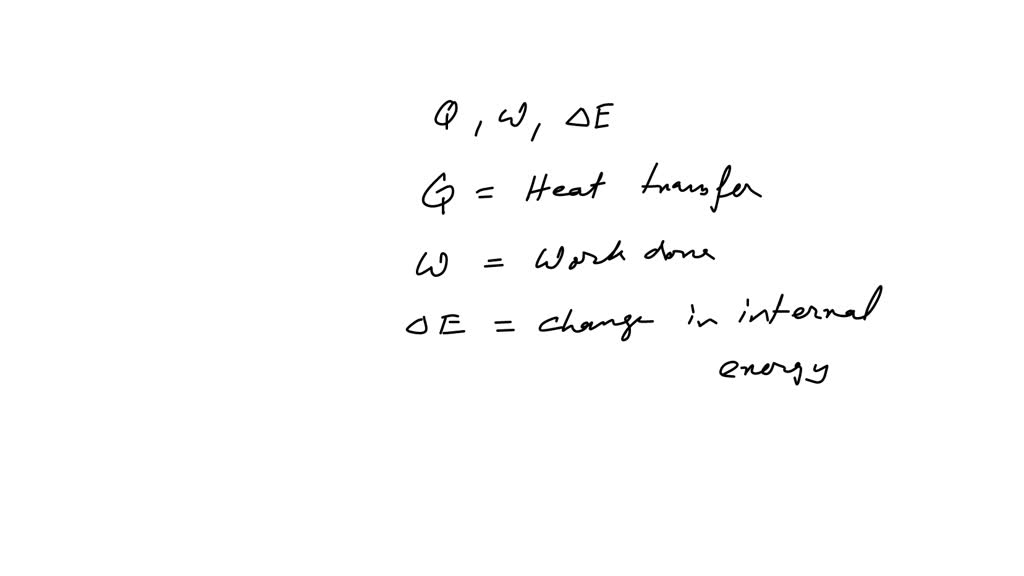 Q, W, ΔE
Q = Heat transfer
W = Work done
ΔE = change in internal
energy